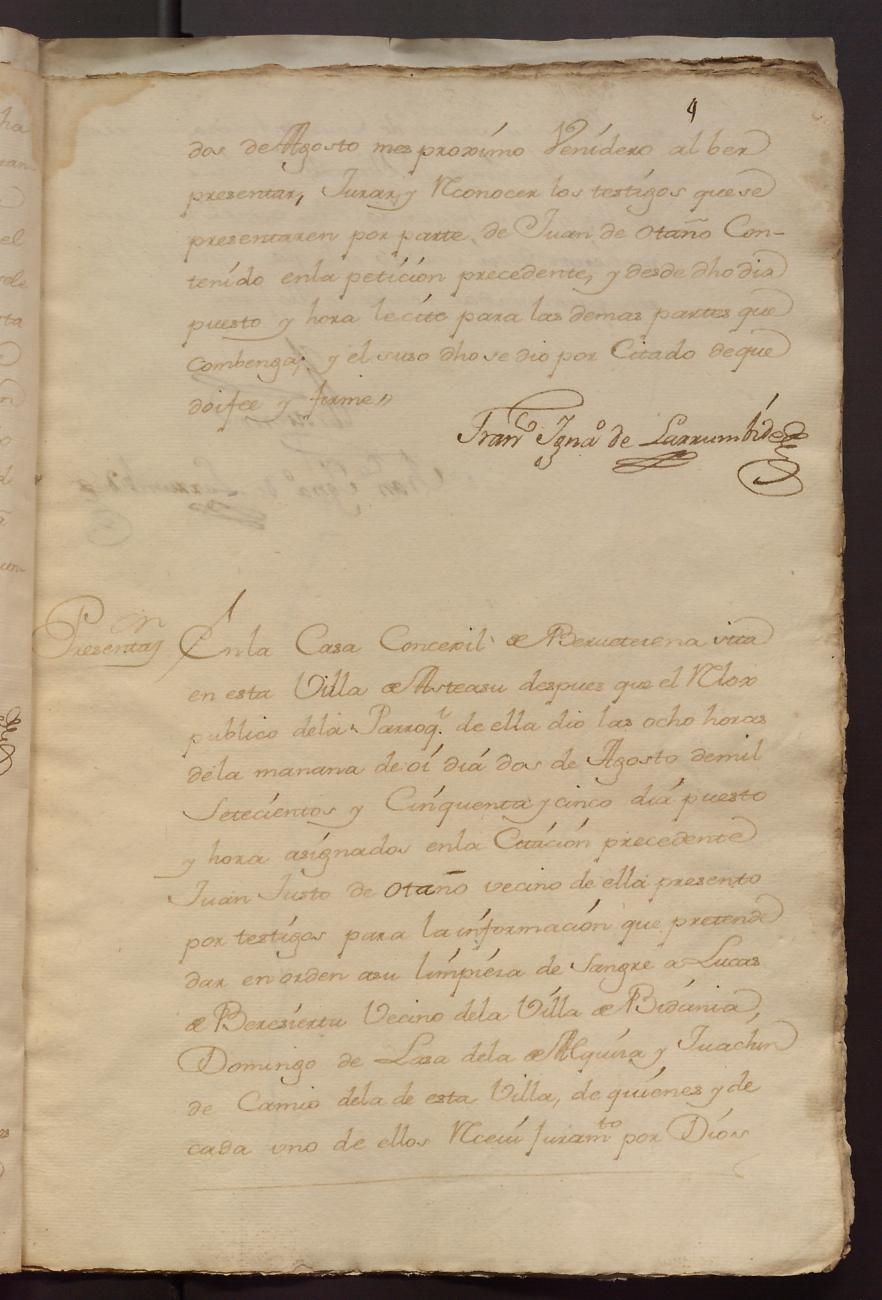 4
dos de Agosto mes proxímo Venídero al ber
presentar, Jurar, y Rconocer los testígos que se
presentaren por parte de Juan de Otaño Con-
tenído enla petícíon precedente, y desde dho dia
puesto y hora le cíte para las demas partes que
Combenga, y el suso dho se dio por Citado deque
doifee y firme,,
Franco Ignao de Larrumbíde
Presentaon
Enla Casa Concexil de Berueterena sita
en esta Villa de Asteasu despues que el Rlox
publico dela Parroq.l de ella dio las ocho horas
dela manana de oí diá dos de Agosto demil
Setecíentos y Cinquenta y cinco diá puesto
y hora asígnados enla Citacíon precedente
Juan Justo de Otaño vecino de ella presento
por testígos para la ínformacíon que pretende
dar en orden asu límpiesa de Sangre a Lucas
de Beresíertu Vecino dela Vílla de Bidánia,
Domingo de Lasa dela de Alquísa y Juachin
de Camio dela de esta Villa, de quíenes y de
cada uno de ellos Rceuí Juramto por Díos